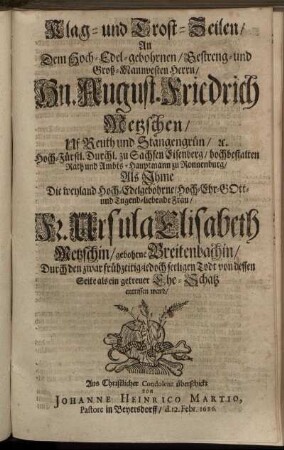 Klag- und Trost-Zeilen/
An
Dem Hoch-Edel-gebohrnen/ Gestreng- und
Groß-Mannvesten Herrn/
Hn. August-Friedrich
Metzschen/
Uf Reuth und Stangengrün/ ꝛc.
Hoch-Fürstl. Durchl. zu Sachsen Eisenberg/ hochbestalten
Rath und Ambts-Hauptmann zu Ronneburg/
Als Ihme
Die weyland Hoch-Edelgebohrne/ Hoch-Ehr-GOtt-
und Tugend-liebende Frau/
Fr. Ursula Elisabeth
Metzschin/ gebohrne Breitenbachin/
Durch den zwar frühzeitig-iedoch seeligen Todt von dessen
Seite als ein getreuer Ehe-Schatz
entrissen ward/
Aus Christlicher Condolenz überschickt
von
JOHANNE HEINRICO MARTIO,
Pastore in Beyersdorff/ d. 12. Febr.